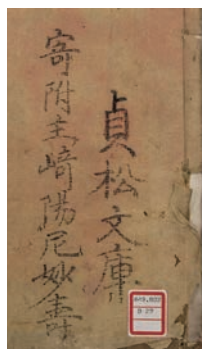 貞松文庫
寄附主崎陽尼妙壽